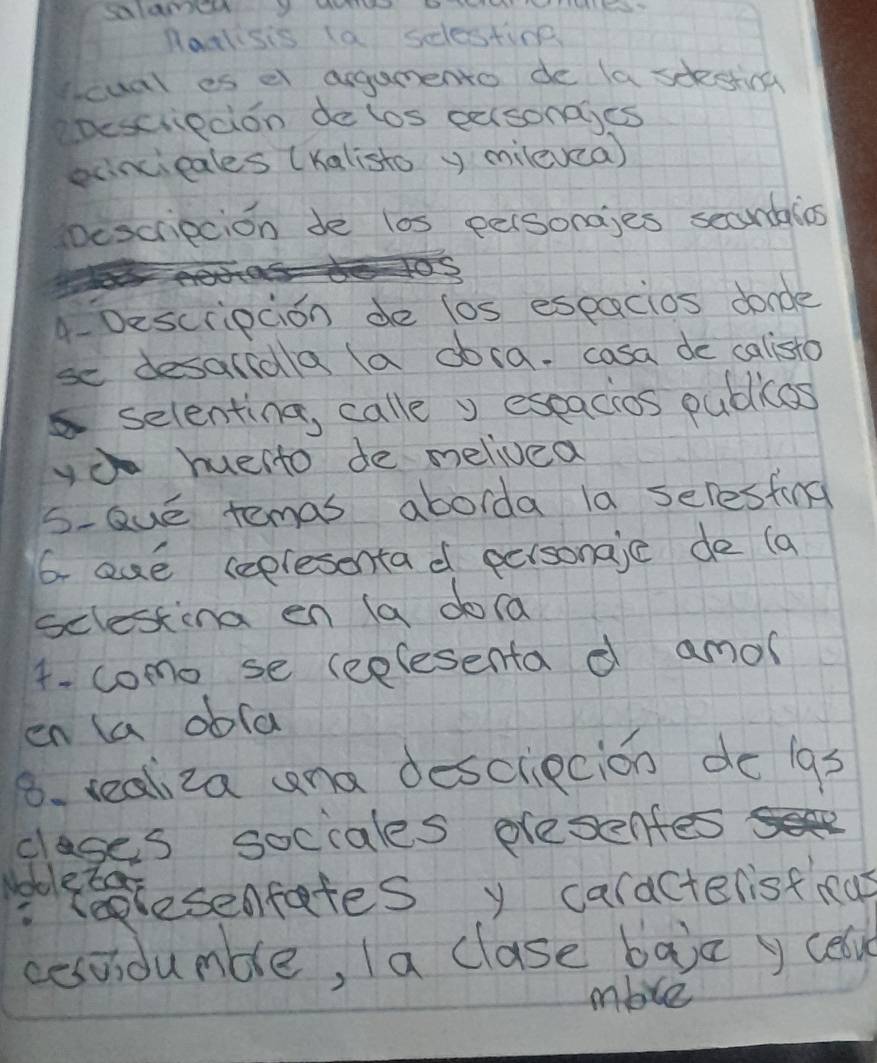 salamea y
Analisis la selestina
1-cual es el argumento de la selestina
2 Descripción de los personajes
principales (Kalisto y milevea)
Descripción de los personajes secundarios
4- Descripción de los espacios donde
se desarrolla la obra. casa de calisto
selentina, calle y espacios publicos
y huerto de melivea
5- Qué temas aborda la selestina
6- qué representa el personaje de la
selestina en la obra
7- como se representa el amor
en la obra
8. realiza una descripción de las
clases sociales presentes
Nobleza:
representates y caracteristicas
cervidumbre, la clase baja y cervidu
mbre